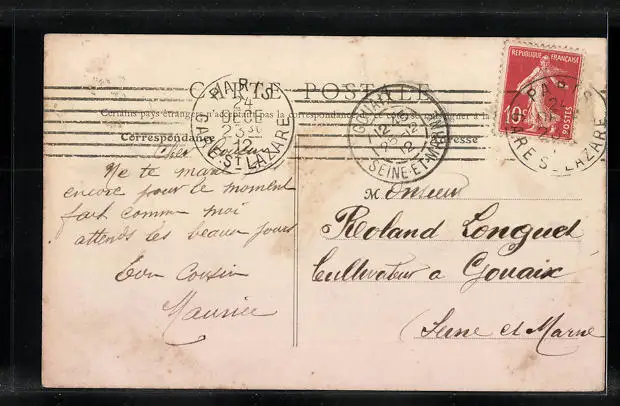 CARTE POSTALE
Certains pays étrangers n'acceptant pas la correspondance
Correspondance
resse
PARIS
24
23 30
12
GARE ST LAZARE
GOUAIX
12
SEINE-ET-MARNE
REPUBLIQUE FRANÇAISE
10c
POSTES
PARIS
GARE ST LAZARE
Cher Cousin
Ne te marie
encore pour le moment
fait comme moi
attends les beaux jours
ton Cousin
Maurice
Monsieur
Roland Longuet
Cultivateur a Gouaix
(Seine et Marne